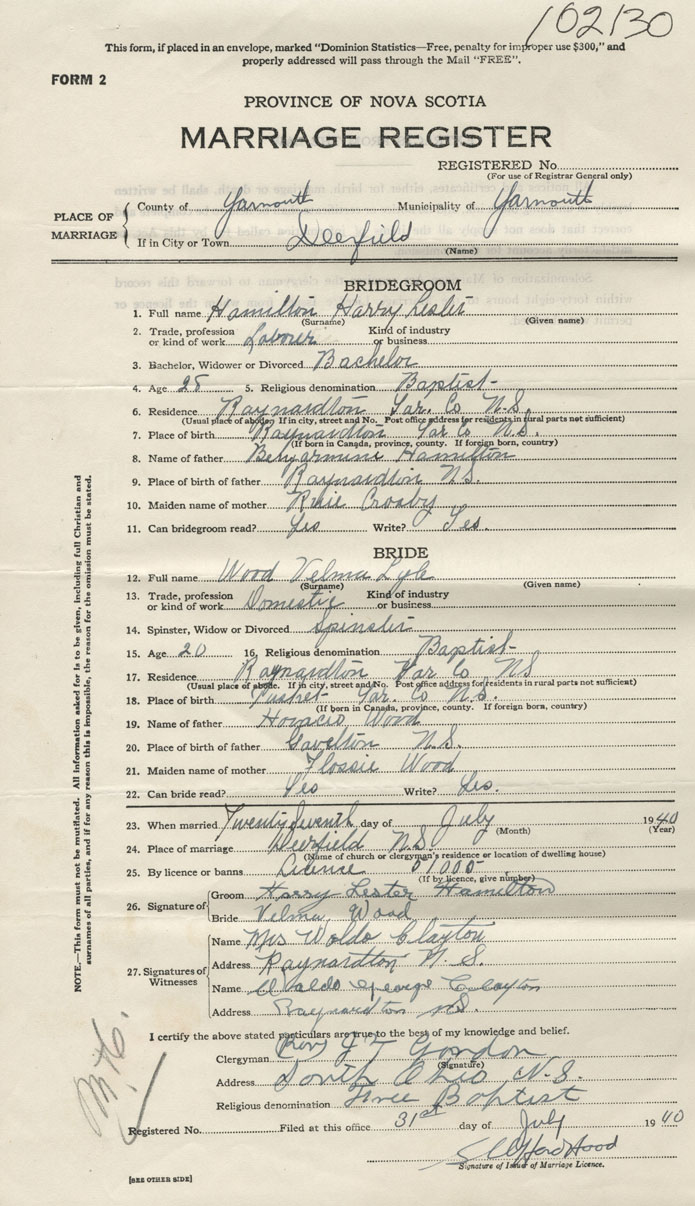 102130
This form, if placed in an envelope, marked "Dominion Statistics—Free, penalty for improper use $300," and
properly addressed will pass through the Mail "FREE".
FORM 2
PROVINCE OF NOVA SCOTIA
MARRIAGE REGISTER
REGISTERED No.
(For use of Registrar General only)
PLACE OF MARRIAGE
County of Yarmouth Municipality of Yarmouth
If in City or Town Deerfield
(Name)
BRIDEGROOM
1. Full name Hamilton Harry Lester
(Surname) (Given name)
2. Trade, profession or kind of work Labourer Kind of industry or business
3. Bachelor, Widower or Divorced Bachelor
4. Age 25 5. Religious denomination Baptist
6. Residence Raynardton Yar. Co N.S.
(Usual place of abode. If in city, street and No. Post office address for residents in rural parts not sufficient)
7. Place of birth Raynardton Yar Co N.S.
(If born in Canada, province, county. If foreign born, country)
8. Name of father Hamilton
9. Place of birth of father Raynardton N.S.
10. Maiden name of mother Crosby
11. Can bridegroom read? Yes Write? Yes.
BRIDE
12. Full name Wood Velma Lyle
(Surname) (Given name)
13. Trade, profession or kind of work Domestic Kind of industry or business
14. Spinster, Widow or Divorced Spinster
15. Age 20 16. Religious denomination Baptist
17. Residence Raynardton Yar Co NS
(Usual place of abode. If in city, street and No. Post office address for residents in rural parts not sufficient)
18. Place of birth Yar. Co N.S.
(If born in Canada, province, county. If foreign born, country)
19. Name of father Wood
20. Place of birth of father Gavelton N.S.
21. Maiden name of mother Flossie Wood
22. Can bride read? Yes Write? Yes.
23. When married Twenty Seventh day of July 1940
(Month) (Year)
24. Place of marriage Deerfield N.S.
(Name of church or clergyman's residence or location of dwelling house)
25. By licence or banns License 01000
(If by licence, give number)
26. Signature of
Groom Harry Lester Hamilton
Bride Velma Wood
27. Signatures of Witnesses
Name Mrs Waldo Clayton
Address Raynardton N.S.
Name Waldo George Clayton
Address Raynardton NS.
I certify the above stated particulars are true to the best of my knowledge and belief.
Clergyman (Rev) J T Gordon
(Signature)
Address South Ohio N.S.
Religious denomination Free Baptist
Registered No. Filed at this office 31st day of July 1940
Clifford Hood
Signature of Issuer of Marriage Licence.
[SEE OTHER SIDE]
NOTE.—This form must not be mutilated. All information asked for is to be given, including full Christian and
surnames of all parties, and if for any reason this is impossible, the reason for the omission must be stated.